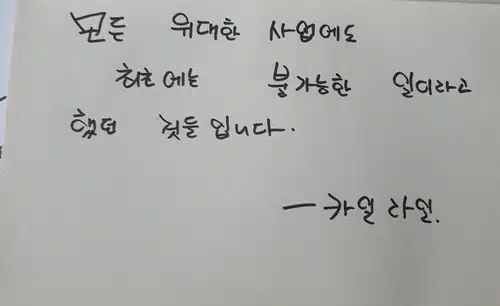 모든 위대한 사업에도
최초에는 불가능한 일이라고
했던 것들 입니다.
- 카알 라일.